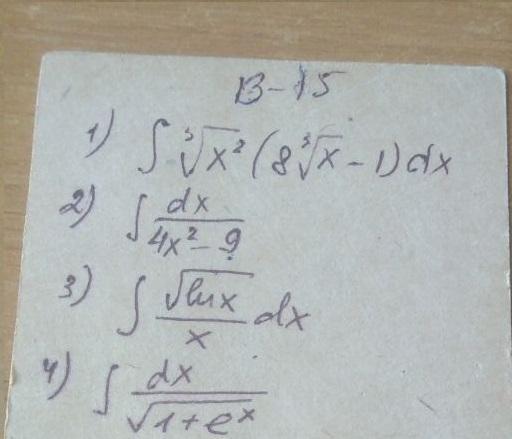 В-15
1) ∫ ∛x² (8∛x - 1) dx
2) ∫ dx/(4x² - 9)
3) ∫ √(ln x)/x dx
4) ∫ dx/√(1+eˣ)